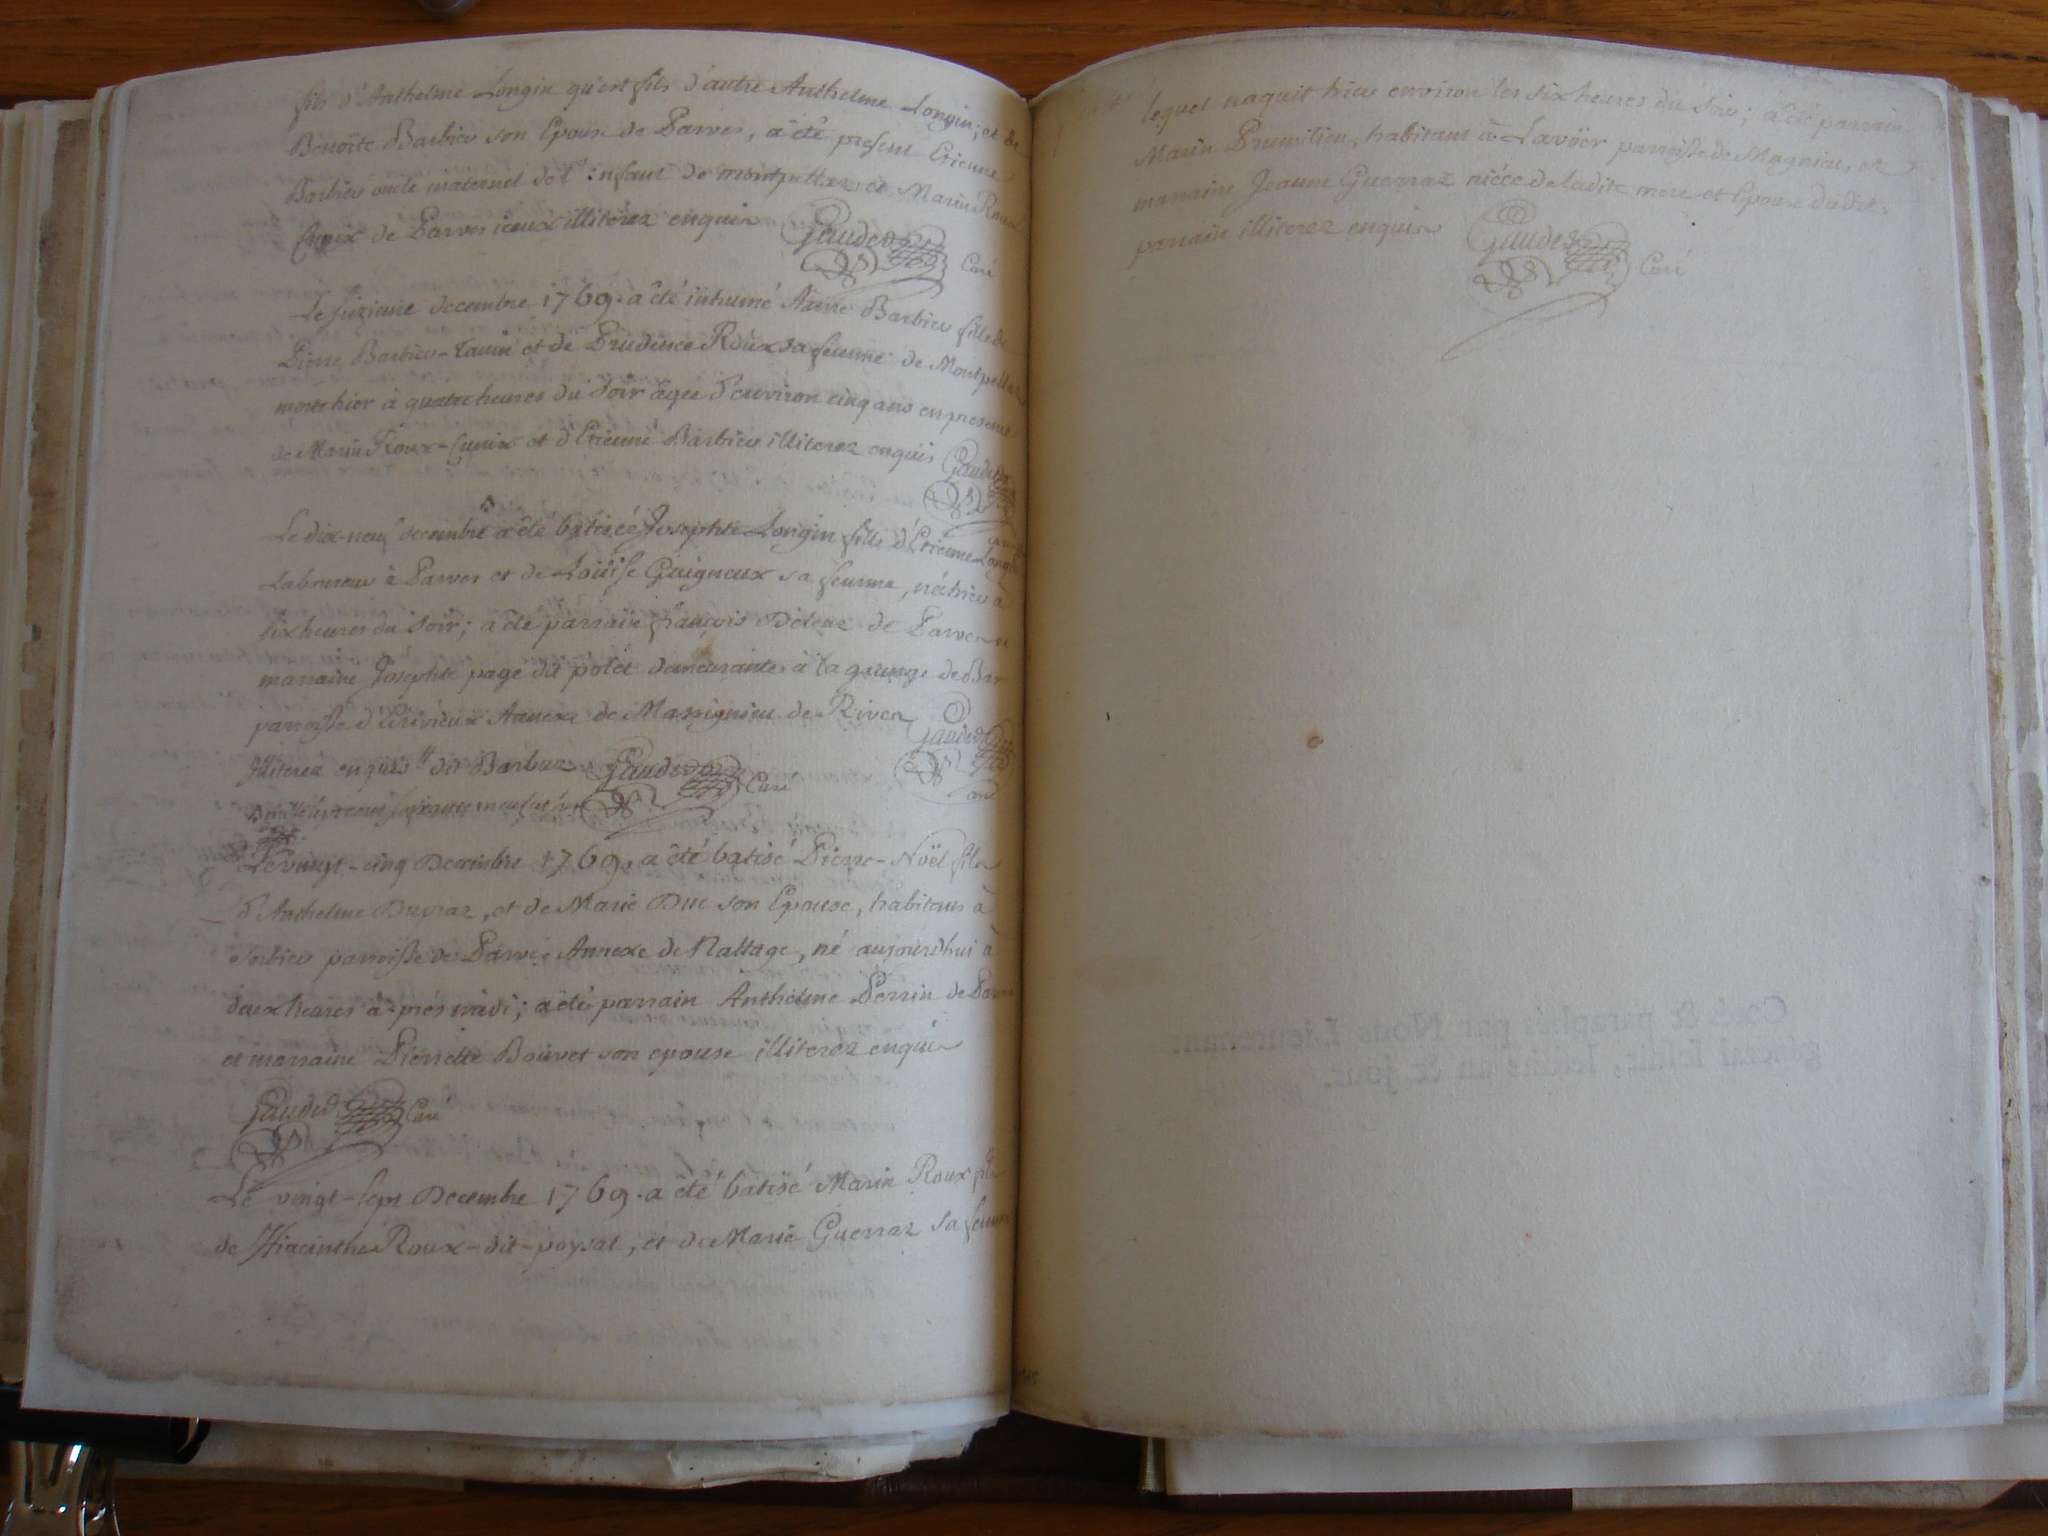 fils d'Anthelme Longin qu'est fils d'autre Anthelme Longin; et de
Benoîte Barbieu son Epouse de Parves, a été présent Etienne
Barbieu oncle maternel de l'enfant de montpellaz et Marin Roux
Cunix de Parves iceux illiterez enquis Gaudet Curé
Le sixieme decembre 1769. a été inhumé Anne Barbieu fille de
Pierre Barbieu-Tauin et de Prudence Roux sa femme de Montpellaz
morte hier à quatre heures du soir agée d'environ cinq ans en presence
de Marin Roux-Cunix et d'Etienne Barbieu illiterez enquis Gaudet
Le dix-neuf decembre a été batisée Josephte Longin fille d'Etienne Longin
Laboureur à Parves et de Loüise Guigneux sa femme, née hier à
six heures du soir; a été parrain françois de Parves et
marraine Josephte page dit polet demeurante à la grange de Bar
paroisse d' Annexe de Massignieu de Rives
Illiterez enquis dit Barbuz Gaudet Curé
mil sept cent soixante neuf
Gaudet Curé
Le vingt-cinq Decembre 1769. a été batisé Pierre-Noël fils
d'Anthelme Duvraz, et de Marie Duc son Epouse, habitans à
Sorbieu parroisse de Parves Annexe de Nattage, né aujourdhui à
deux heures a-prés midi; a été parrain Anthelme Perrin de Parves
et marraine Pierrette Bouvet son epouse illiterez enquis
Gaudet Curé
Le vingt-sept Decembre 1769. a été batisé Marin Roux fils
de Hiacinthe Roux-dit-poysat, et de Marie Guerraz sa femme
lequel naquit hier environ les six heures du soir; a été parrain
Marin Prumilieu, habitant à Lavöer parroisse de Magnieu, et
marraine Jeanne Guerraz niéce de ladite mere et Epouse dudit
parrain illiterez enquis Gaudet Curé